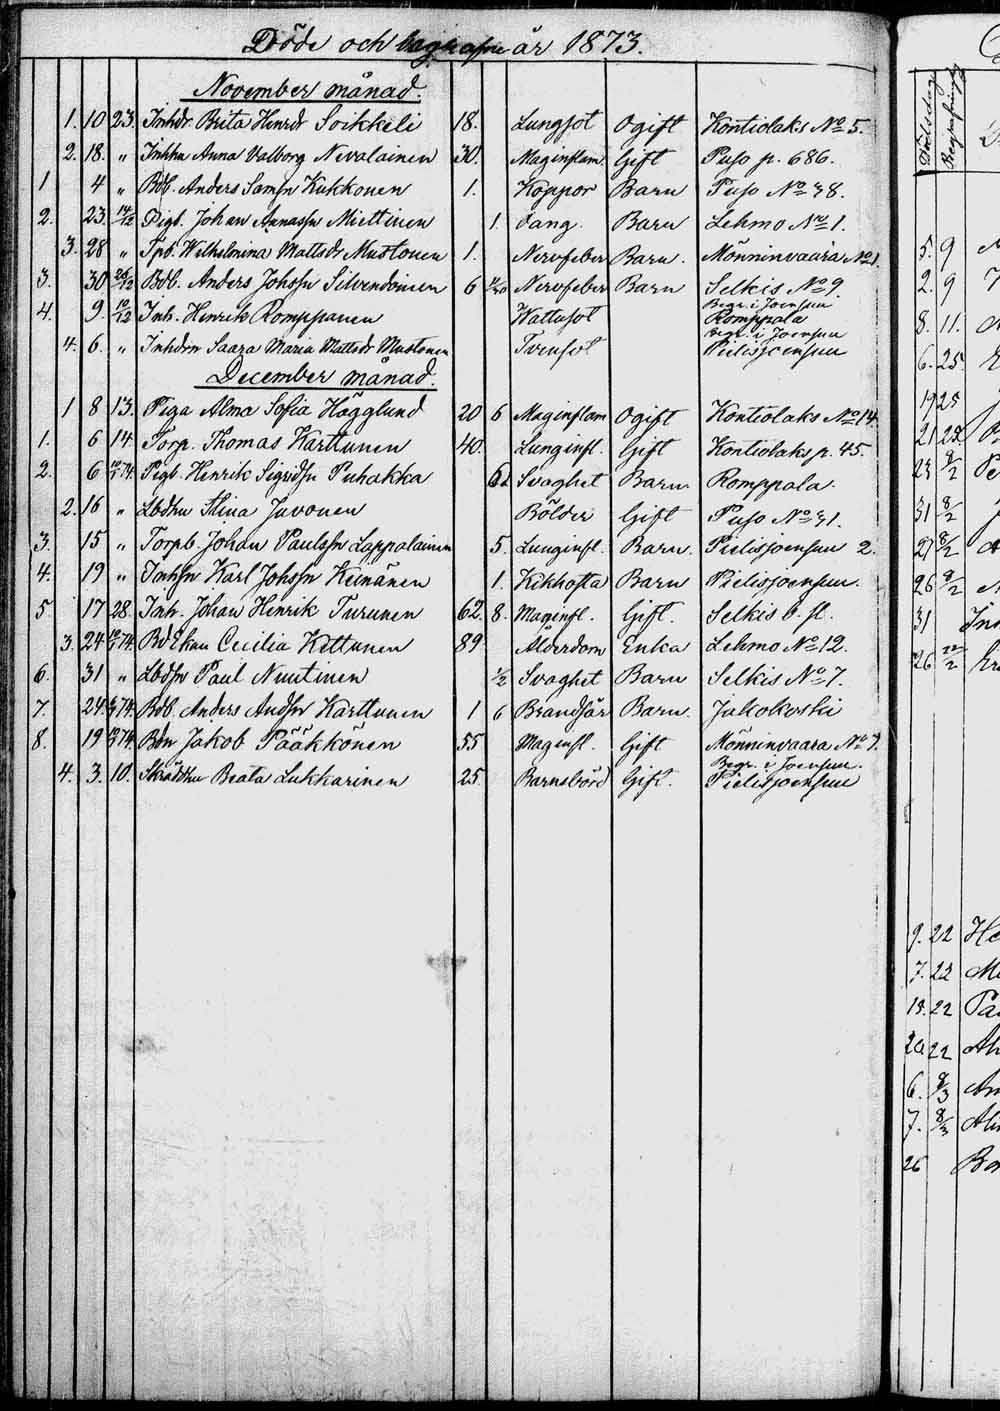 Döde och begrafne år 1873.
November månad.
1. 10 23. Inhdr Brita Henrdr Soikkeli 18. Lungsot Ogift Kontiolaks No 5.
2. 18. " Inhhu Anna Valborg Nevalainen 30. Maginflam. Gift Puso p. 686.
1 4 " Bdb. Anders Samsn Kukkonen 1. Koppor Barn Puso No 38.
2. 23 14/12 Pigb. Johan Annassn Miettinen 1. Barn Lehmo No 1.
3. 28 " Tpb. Wilhelmina Mattsdr Mustonen 1. Nervfeber Barn. Mönninvaara No 1.
3. 30 26/12 Bdb. Anders Johssn Silvendoinen 6 Nervfeber Barn Selkis No 9.
4. 9. 10/12 Inh. Henrik Romppanen Wattusot Begr. i Joensuu Romppala
4. 6. " Inhdrn Saara Maria Mattsdr Mustonen Tvinsot Begr. i Joensuu Pielisjoensuu
December månad.
1 8 13. Piga Alma Sofia Hägglund 20 6 Maginflam Ogift Kontiolaks No 14.
1. 6 14. Torp. Thomas Karttunen 40. Lunginfl. Gift Kontiolaks p. 45.
2. 6 74. Pigb. Henrik Sigridsn Puhakka Svaghet Barn. Romppala.
2. 16 " Lbdhu Stina Javonen Bölder Gift Puso No 31.
3. 15 " Torpb. Johan Paulssn Lappalainen 5. Lunginfl. Barn. Pielisjoensuu 2.
4. 19 " Inhsn Karl Johssn Keinänen 1. Kikhosta Barn Pielisjoensuu.
5 17 28. Inh. Johan Henrik Turunen 62. 8. Maginfl. Gift. Selkis b. fl.
3. 24 74. Bd Ekan Cecilia Kettunen 89 Ålderdom Enka Lehmo No 12.
6. 31 " Lbdsn Paul Nuutinen 1/2 Svaghet Barn Selkis No 7.
7. 24. 74. Bdb. Anders Andsn Karttunen 1 6 Brandsår Barn. Jakokoski
8. 19 74. Bdn Jakob Pääkkönen 55 Maginfl. Gift Mönninvaara No 7.
4. 3. 10. Skräddhu Beata Lukkarinen 25. Barnsbörd Gift. Begr. i Joensuu. Pielisjoensuu
Dödsdag
Begrafningsdag
5. 9
2. 9
8. 11.
6. 25.
19 25
21 25
23 8/2
31 8/2
27 8/2
26 8/2
31
26 22/2
9. 22
7. 22
18. 22
20 22
6. 8/3
7. 8/3
26